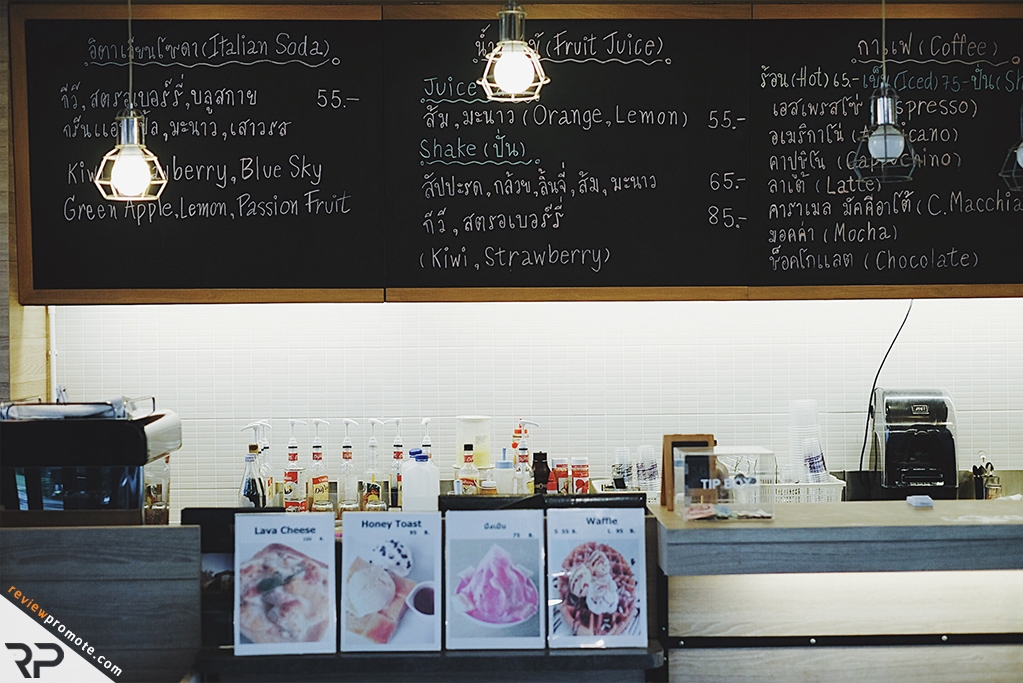 อิตาเลียนโซดา (Italian Soda)
กีวี, สตรอเบอร์รี่, บลูสกาย 55.-
กรีนแอปเปิ้ล, มะนาว, เสาวรส
Kiwi, Strawberry, Blue Sky
Green Apple, Lemon, Passion Fruit
(Fruit Juice)
Juice
ส้ม, มะนาว (Orange, Lemon) 55.-
Shake (ปั่น)
สัปปะรด, กล้วย, ลิ้นจี่, ส้ม, มะนาว 65.-
กีวี, สตรอเบอร์รี่ 85.-
(Kiwi, Strawberry)
กาแฟ (Coffee)
ร้อน (Hot) 65.- เย็น (Iced) 75.- ปั่น (Sh
เอสเพรสโซ่ Espresso)
อเมริกาโน่
คาปูชิโน่ (Cappuchino)
ลาเต้ (Latte)
คาราเมล มัคคีอาโต้ (C. Macchia
มอคค่า (Mocha)
ช็อคโกแลต (Chocolate)
TIP BOX
Lava Cheese
Honey Toast
95 ฿.
ปังเย็น
75 ฿.
Waffle
S 55 ฿. L. 95 ฿.
reviewpromote.com
RP